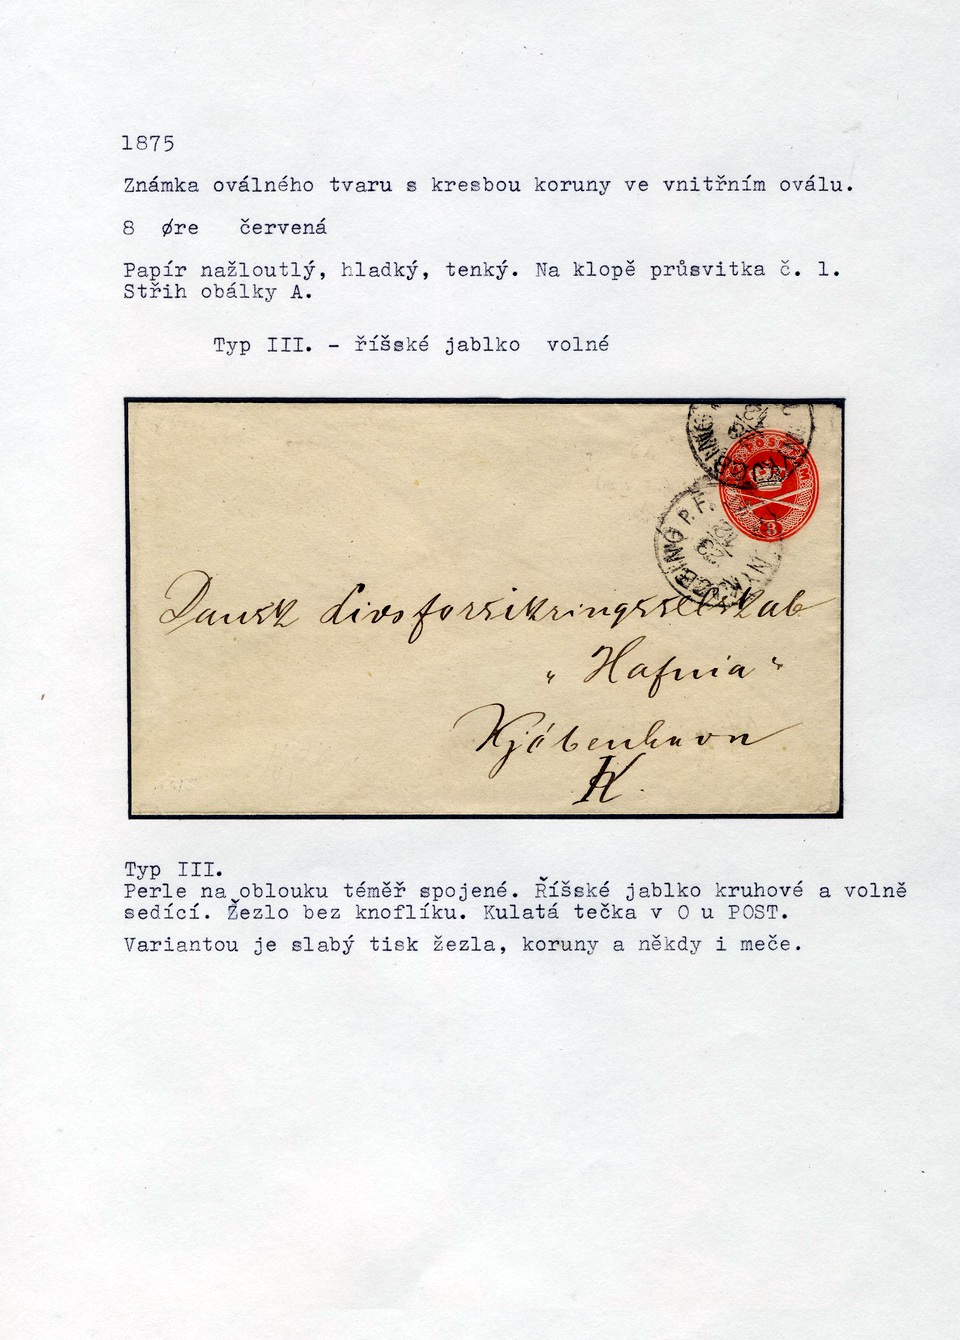 1875
Známka oválného tvaru s kresbou koruny ve vnitřním oválu.
8 øre červená
Papír nažloutlý, hladký, tenký. Na klopě průsvitka č. 1.
Střih obálky A.
Typ III. - říšské jablko volné
POST
8
KJØBING P. F.
NY
Dansk Livsforsikringsselskab
„Hafnia“
Kjöbenhavn
K.
Typ III.
Perle na oblouku téměř spojené. Říšské jablko kruhové a volně
sedící. Žezlo bez knoflíku. Kulatá tečka v O u POST.
Variantou je slabý tisk žezla, koruny a někdy i meče.